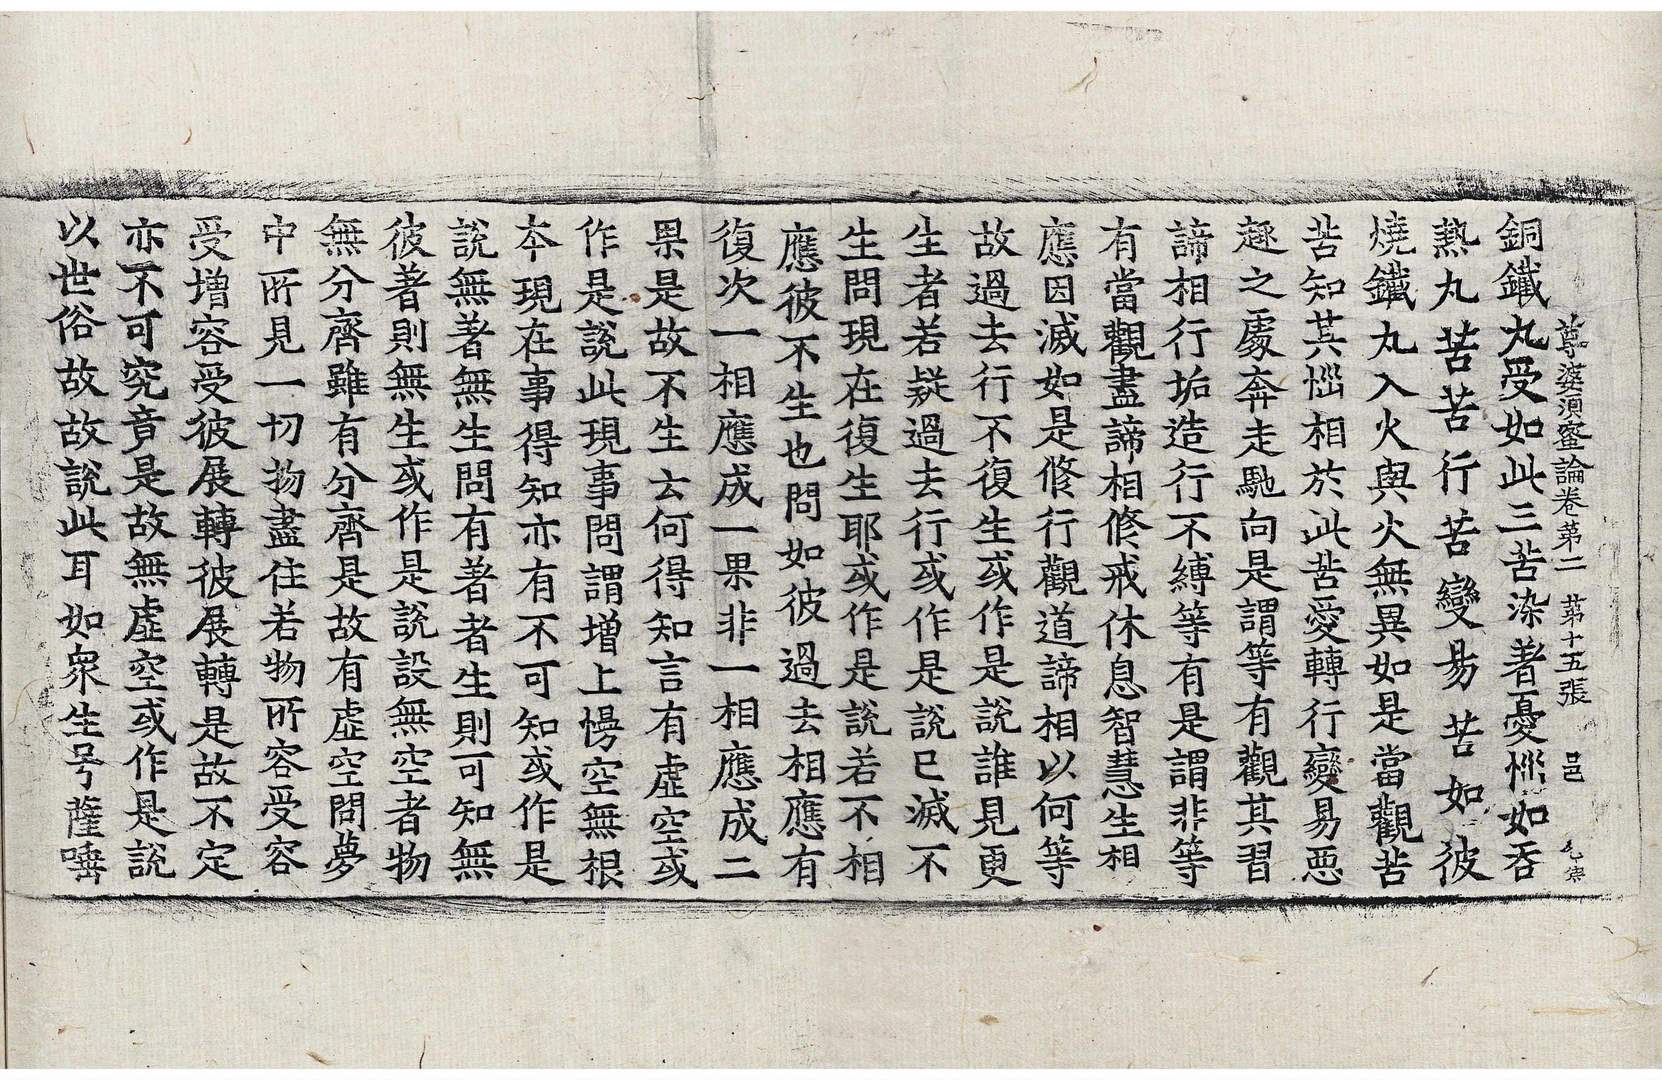 尊婆須蜜論卷第二 苐十五張 邑
銅鐵丸受如此三苦染著憂惱如吞
熱丸苦苦行苦變易苦如彼
燒鐵丸入火與火無異如是當觀苦
苦知其惱相於此苦愛轉行變易惡
趣之處奔走馳向是謂等有觀其習
諦相行垢造行不縛等有是謂非等
有當觀盡諦相修戒休息智慧生相
應因滅如是修行觀道諦相以何等
故過去行不復生或作是說誰見更
生者若疑過去行或作是說已滅不
生問現在復生耶或作是說若不相
應彼不生也問如彼過去相應有
復次一相應成一果非一相應成二
果是故不生云何得知言有虛空或
作是說此現事問謂增上慢空無根
本現在事得知亦有不可知或作是
說無著無生問有著者生則可知無
彼著則無生或作是說設無空者物
無分齊雖有分齊是故有虛空問夢
中所見一切物盡住若物所容受容
受增容受彼展轉彼展轉是故不定
亦不可究竟是故無虛空或作是說
以世俗故故說此耳如衆生号薩埵